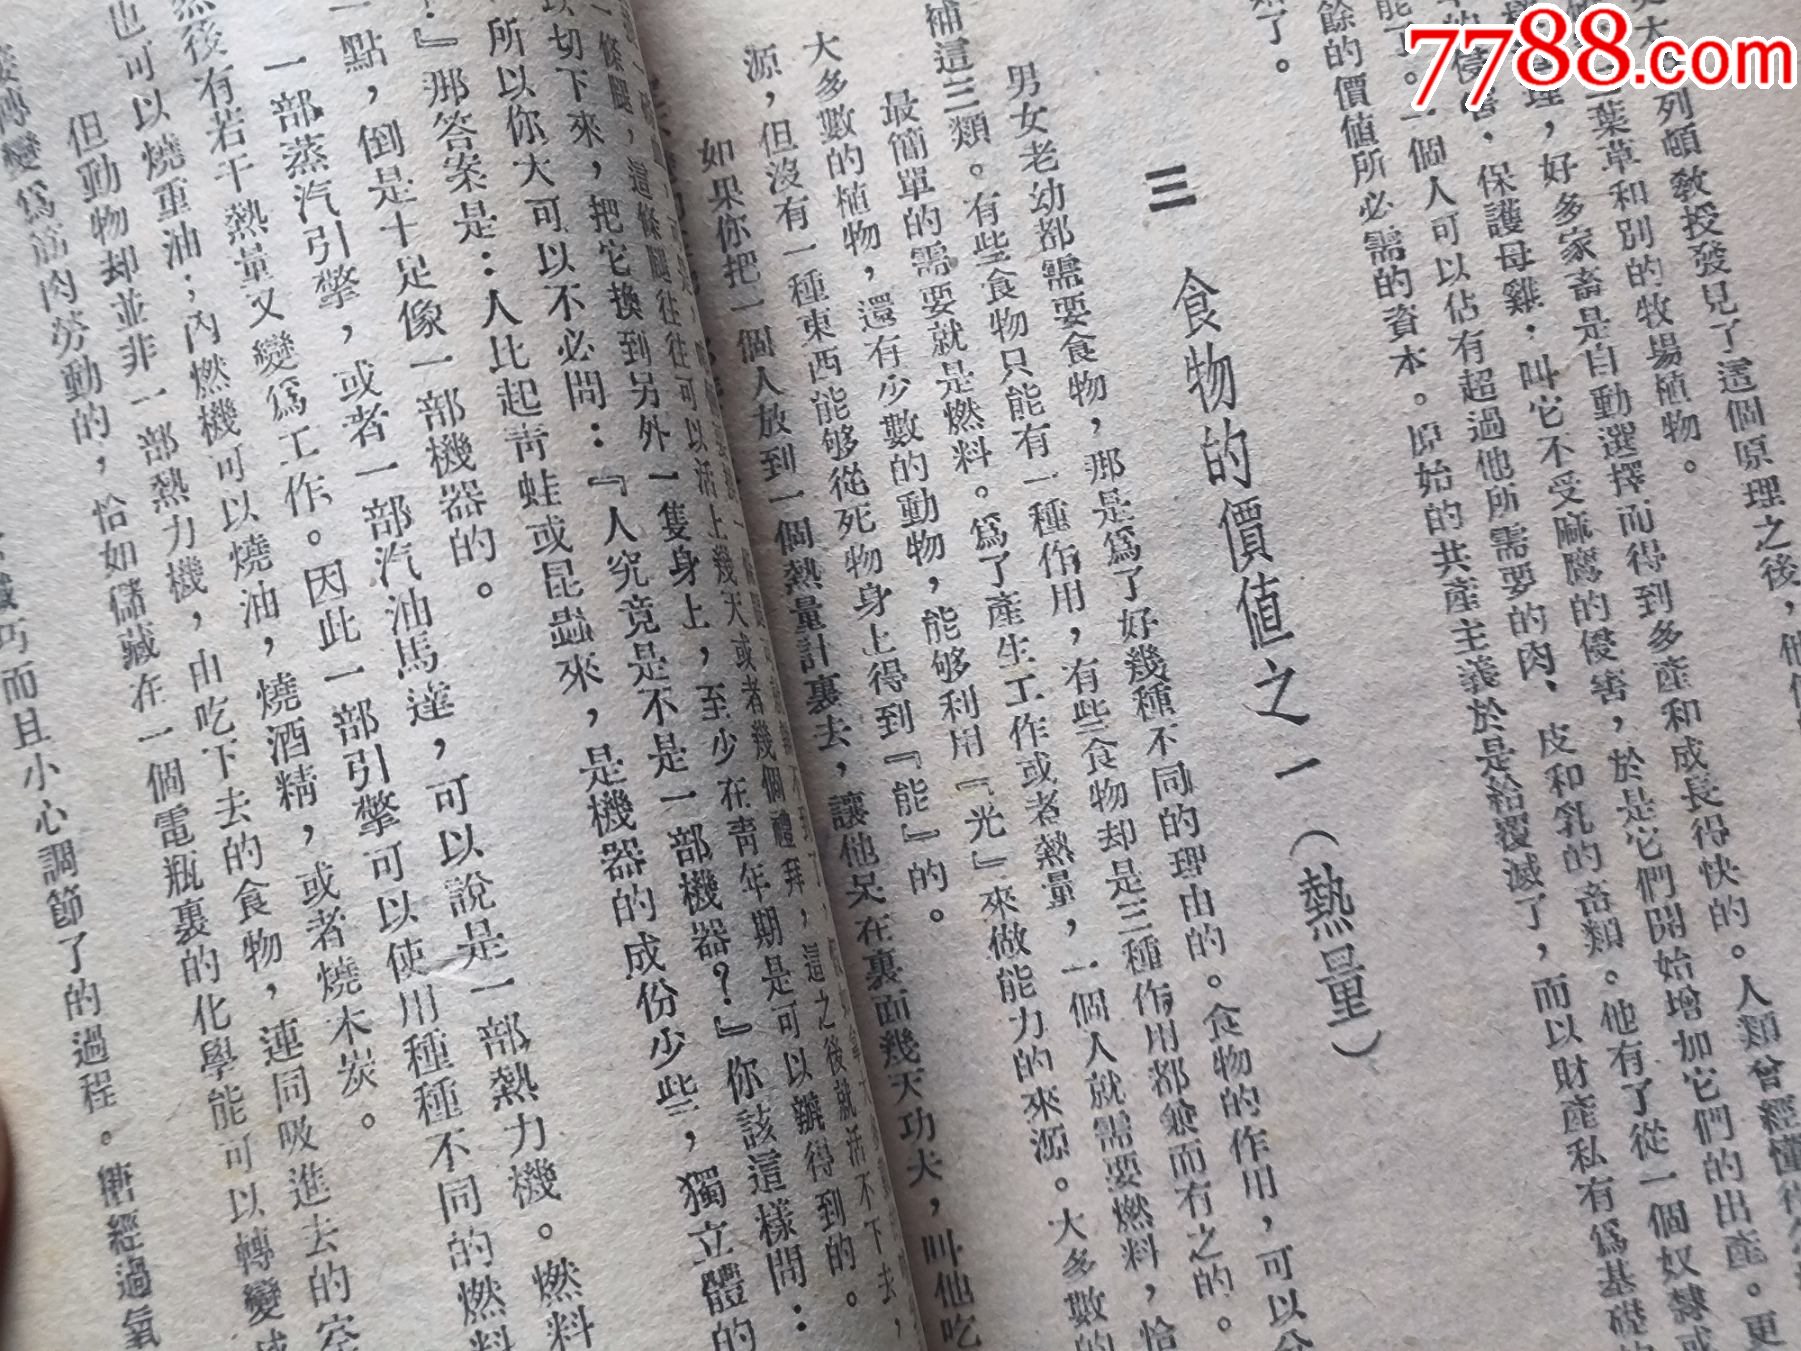 7788.com
列頓敎授發見了這個原理之後，他
葉草和別的牧場植物。
理，好多家畜是自動選擇而得到多產和成長得快的。人類曾經懂得
保護母雞，叫它不受麻鷹的侵害，於是它們開始增加它們的出產。更
能了。一個人可以佔有超過他所需要的肉、皮和乳的畜類。他有了從一個奴隸或
餘的價值所必需的資本。原始的共產主義於是給覆滅了，而以財產私有爲基礎的
了。
三　食物的價値之一（熱量）
男女老幼都需要食物，那是爲了好幾種不同的理由的。食物的作用，可以分
補這三類。有些食物只能有一種作用，有些食物却是三種作用都兼而有之的。
最簡單的需要就是燃料。爲了產生工作或者熱量，一個人就需要燃料，恰
大多數的植物，還有少數的動物，能够利用『光』來做能力的來源。大多數的
源，但沒有一種東西能够從死物身上得到『能』的。
如果你把一個人放到一個熱量計裏去，讓他呆在裏面幾天功夫，叫他吃
一條腿，這條腿往往可以活上幾天或者幾個禮拜，這之後就活不下去，
以切下來，把它換到另外一隻身上，至少在靑年期是可以辦得到的。
所以你大可以不必問：『人究竟是不是一部機器？』你該這樣問：
』那答案是：人比起靑蛙或昆蟲來，是機器的成份少些，獨立體的
一點，倒是十足像一部機器的。
一部蒸汽引擎，或者一部汽油馬達，可以說是一部熱力機。燃料
然後有若干熱量又變爲工作。因此一部引擎可以使用種種不同的燃料
也可以燒重油；內燃機可以燒油，燒酒精，或者燒木炭。
但動物却並非一部熱力機，由吃下去的食物，連同吸進去的空
轉變爲筋肉勞動的，恰如儲藏在一個電瓶裏的化學能可以轉變成
巧而且小心調節了的過程。糖經過氧